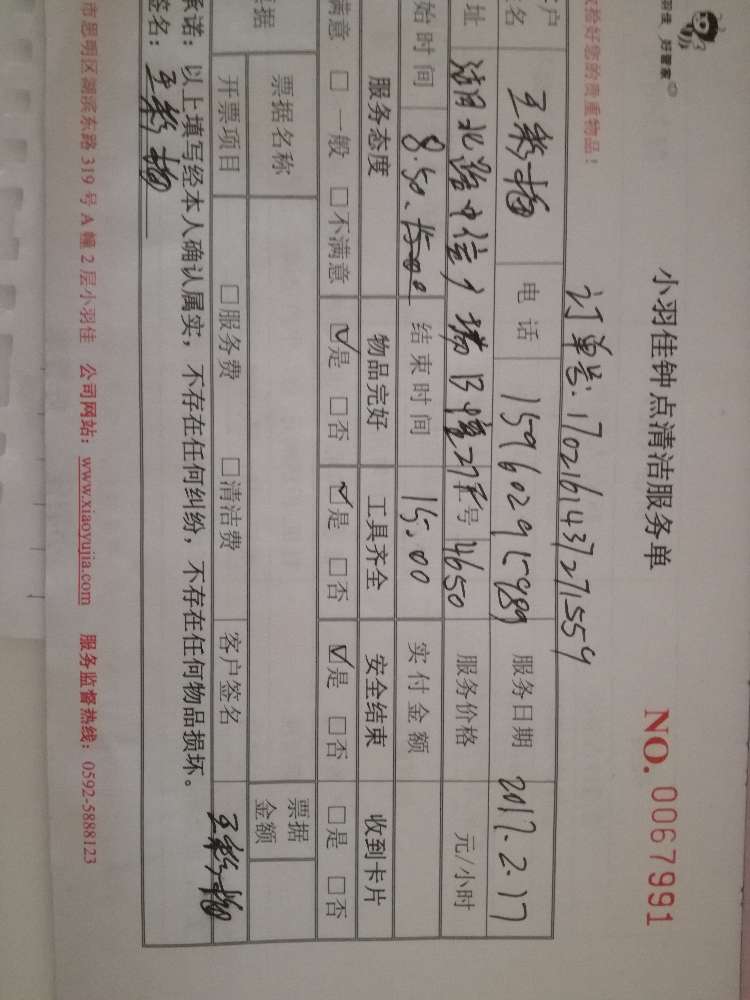 羽佳 好管家
小羽佳钟点清洁服务单 NO. 0067991
检好您的贵重物品！ 订单号：17021614372715559
户 名 电话 15960295989 服务日期 2017.2.17
址 湖北路中位 日 27 号 4650 服务价格 元/小时
始时间 8:50 结束时间 15:00 实付金额
服务态度 物品完好 工具齐全 安全结束 收到卡片
满意 □一般 □不满意 ☑是 □否 ☑是 □否 ☑是 □否 □是 □否
票据名称 票据金额
据 开票项目 □服务费 □清洁费 客户签名
承诺：以上填写经本人确认属实，不存在任何纠纷，不存在任何物品损坏。
签名：
市思明区湖滨东路319号A幢2层小羽佳 公司网站：www.xiaoyujia.com 服务监督热线：0592-5888123